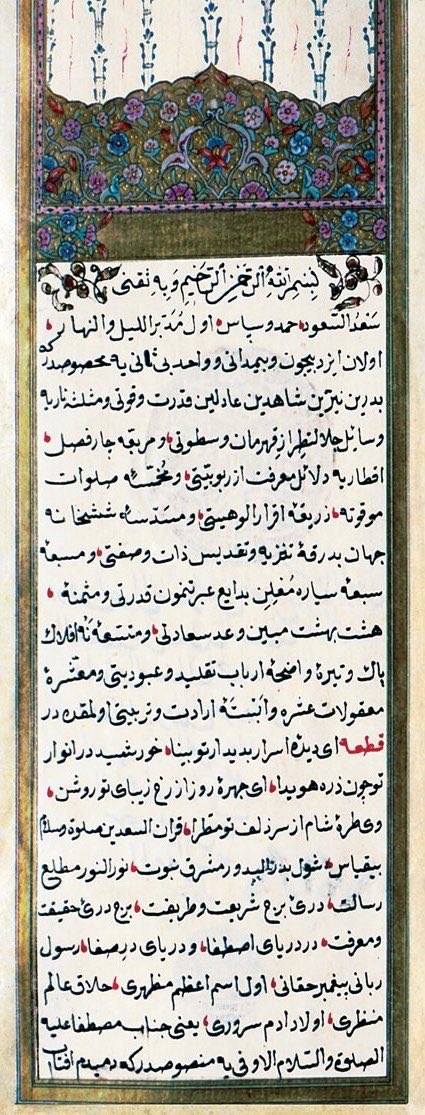 بِسْمِ اللّٰهِ الرَّحْمٰنِ الرَّحِيمِ وَبِهِ ثِقَتِى
سَعْدُ السُّعود حمد و سپاس اول مُدَبّر الليل والنهار
اولان ايزد بيچون و بيهمدانی و واحد بی ثانی يه مخصوصدر كه
بدرين نيّرين شاهدين عادلين قدرت و قوتی و مثلثهٔ ناريه
وسائل جلالتطراز قهرمان و سطوتی و مربعهٔ چار فصل
اقطار يه دلائل معرفت از ربوبيّتی و مخمّسهٔ صلوات
موقوته ذريعهٔ اقرار الوهيتی و مسدّسهٔ ششخانه
جهان بدرقهٔ تنزيه و تقديس ذات و صفتی و مسبعهٔ
سبعهٔ سياره مُعْلِن بدايع عبرتنمون قدرتی و مثمنهٔ
هشت بهشت مبين وعد سعادتی و متسعهٔ نُه افلاك
پاك وتيرهٔ واضحهٔ ارباب تقليد و عبوديتی و معشّرهٔ
معقولات عشره وابستهٔ ارادت و تربيتی اولمقده در
قطعه ای ديده اسرار بديدار تو بينا خورشيد در انوار
تو چون ذره هويدا ای چهرهٔ روز از رخ زيبای تو روشن
وی طرهٔ شام از سر زلف تو مطرا قران السعدين صلوة وسلام
بيقياس شول بدر تاليد ور مشرق نبوت نور النور مطلع
رسالت درئ برج شريعت وطريقت برج درئ حقيقت
ومعرفت در دريای اصطفا و دريای در صفا رسول
ربانی پيغمبر حقانی اول اسم اعظم مظهری خلاق عالم
منظری اولاد ادم سروری يعنی جناب مصطفا عليه
الصلوة والسّلام الاوفی يه منصوصدر كه دميدم افتاب